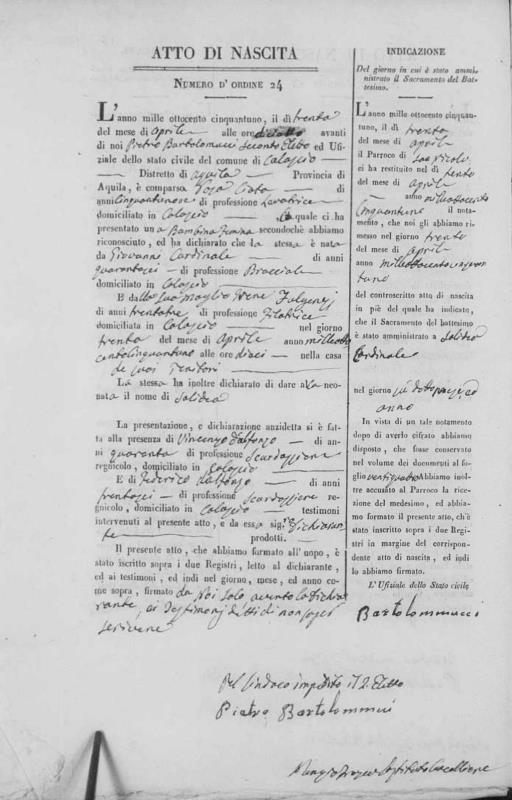 ATTO DI NASCITA
NUMERO D' ORDINE 24
L'anno mille ottocento cinquantuno, il dì trenta
del mese di Aprile alle ore avanti
di noi Pietro Bartolomucci secondo Eletto ed Ufi-
ziale dello stato civile del comune di Calascio
Distretto di Aquila Provincia di
Aquila, è comparsa Rosa di
anni cinquantanove di professione Levatrice
domiciliata in Calascio la quale ci ha
presentato una Bambina secondochè abbiamo
riconosciuto, ed ha dichiarato che la stessa è nata
da Giovanni Cardinale di anni
quarantasei di professione Bracciale
domiciliato in Calascio
E dalla sua moglie Irene Fulgenzj
di anni trentatre di professione Filatrice
domiciliata in Calascio nel giorno
trenta del mese di Aprile anno milleotto
centocinquantuno alle ore dieci nella casa
de suoi Genitori
La stessa ha inoltre dichiarato di dare alla neo-
nata il nome di Solidea
La presentazione, e dichiarazione anzidetta si è fat-
ta alla presenza di Vincenzo Dalfonzo di an-
ni quaranta di professione Scardassiere
regnicolo, domiciliato in Calascio
E di Federico Dalfonzo di anni
trentasei di professione Scardassiere re-
gnicolo, domiciliato in Calascio testimoni
intervenuti al presente atto, e da essa sig.ª dichiaran
te prodotti.
Il presente atto, che abbiamo firmato all'uopo, è
stato iscritto sopra i due Registri, letto al dichiarante,
ed ai testimoni, ed indi nel giorno, mese, ed anno co-
me sopra, firmato da Noi solo avendo la dichia
rante, ei Testimonj detto di non saper
scrivere
Pel Sindaco impedito il 2. Eletto
Pietro Bartolommucci
INDICAZIONE
Del giorno in cui è stato ammi-
nistrato il Sacramento del Bat-
tesimo.
L'anno mille ottocento cinquan-
tuno, il dì trenta
del mese di Aprile
il Parroco di San Nicola
ci ha restituito nel dì trenta
del mese di Aprile
anno milleottocento
cinquantuno il nota-
mento, che noi gli abbiamo ri-
messo nel giorno trenta
del mese di Aprile
anno milleottocentocinquan
tuno
del controscritto atto di nascita
in piè del quale ha indicato,
che il Sacramento del battesimo
è stato amministrato a Solidea
Cardinale
nel giorno ed
anno
In vista di un tale notamento
dopo di averlo cifrato abbiamo
disposto, che fosse conservato
nel volume dei documenti al fo-
glio ventiquattro Abbiamo inol-
tre accusato al Parroco la rice-
zione del medesimo, ed abbia-
mo formato il presente atto, ch'è
stato inscritto sopra i due Regi-
stri in margine del corrispon-
dente atto di nascita, ed indi
lo abbiamo firmato.
L'Ufiziale dello Stato civile
Bartolommucci